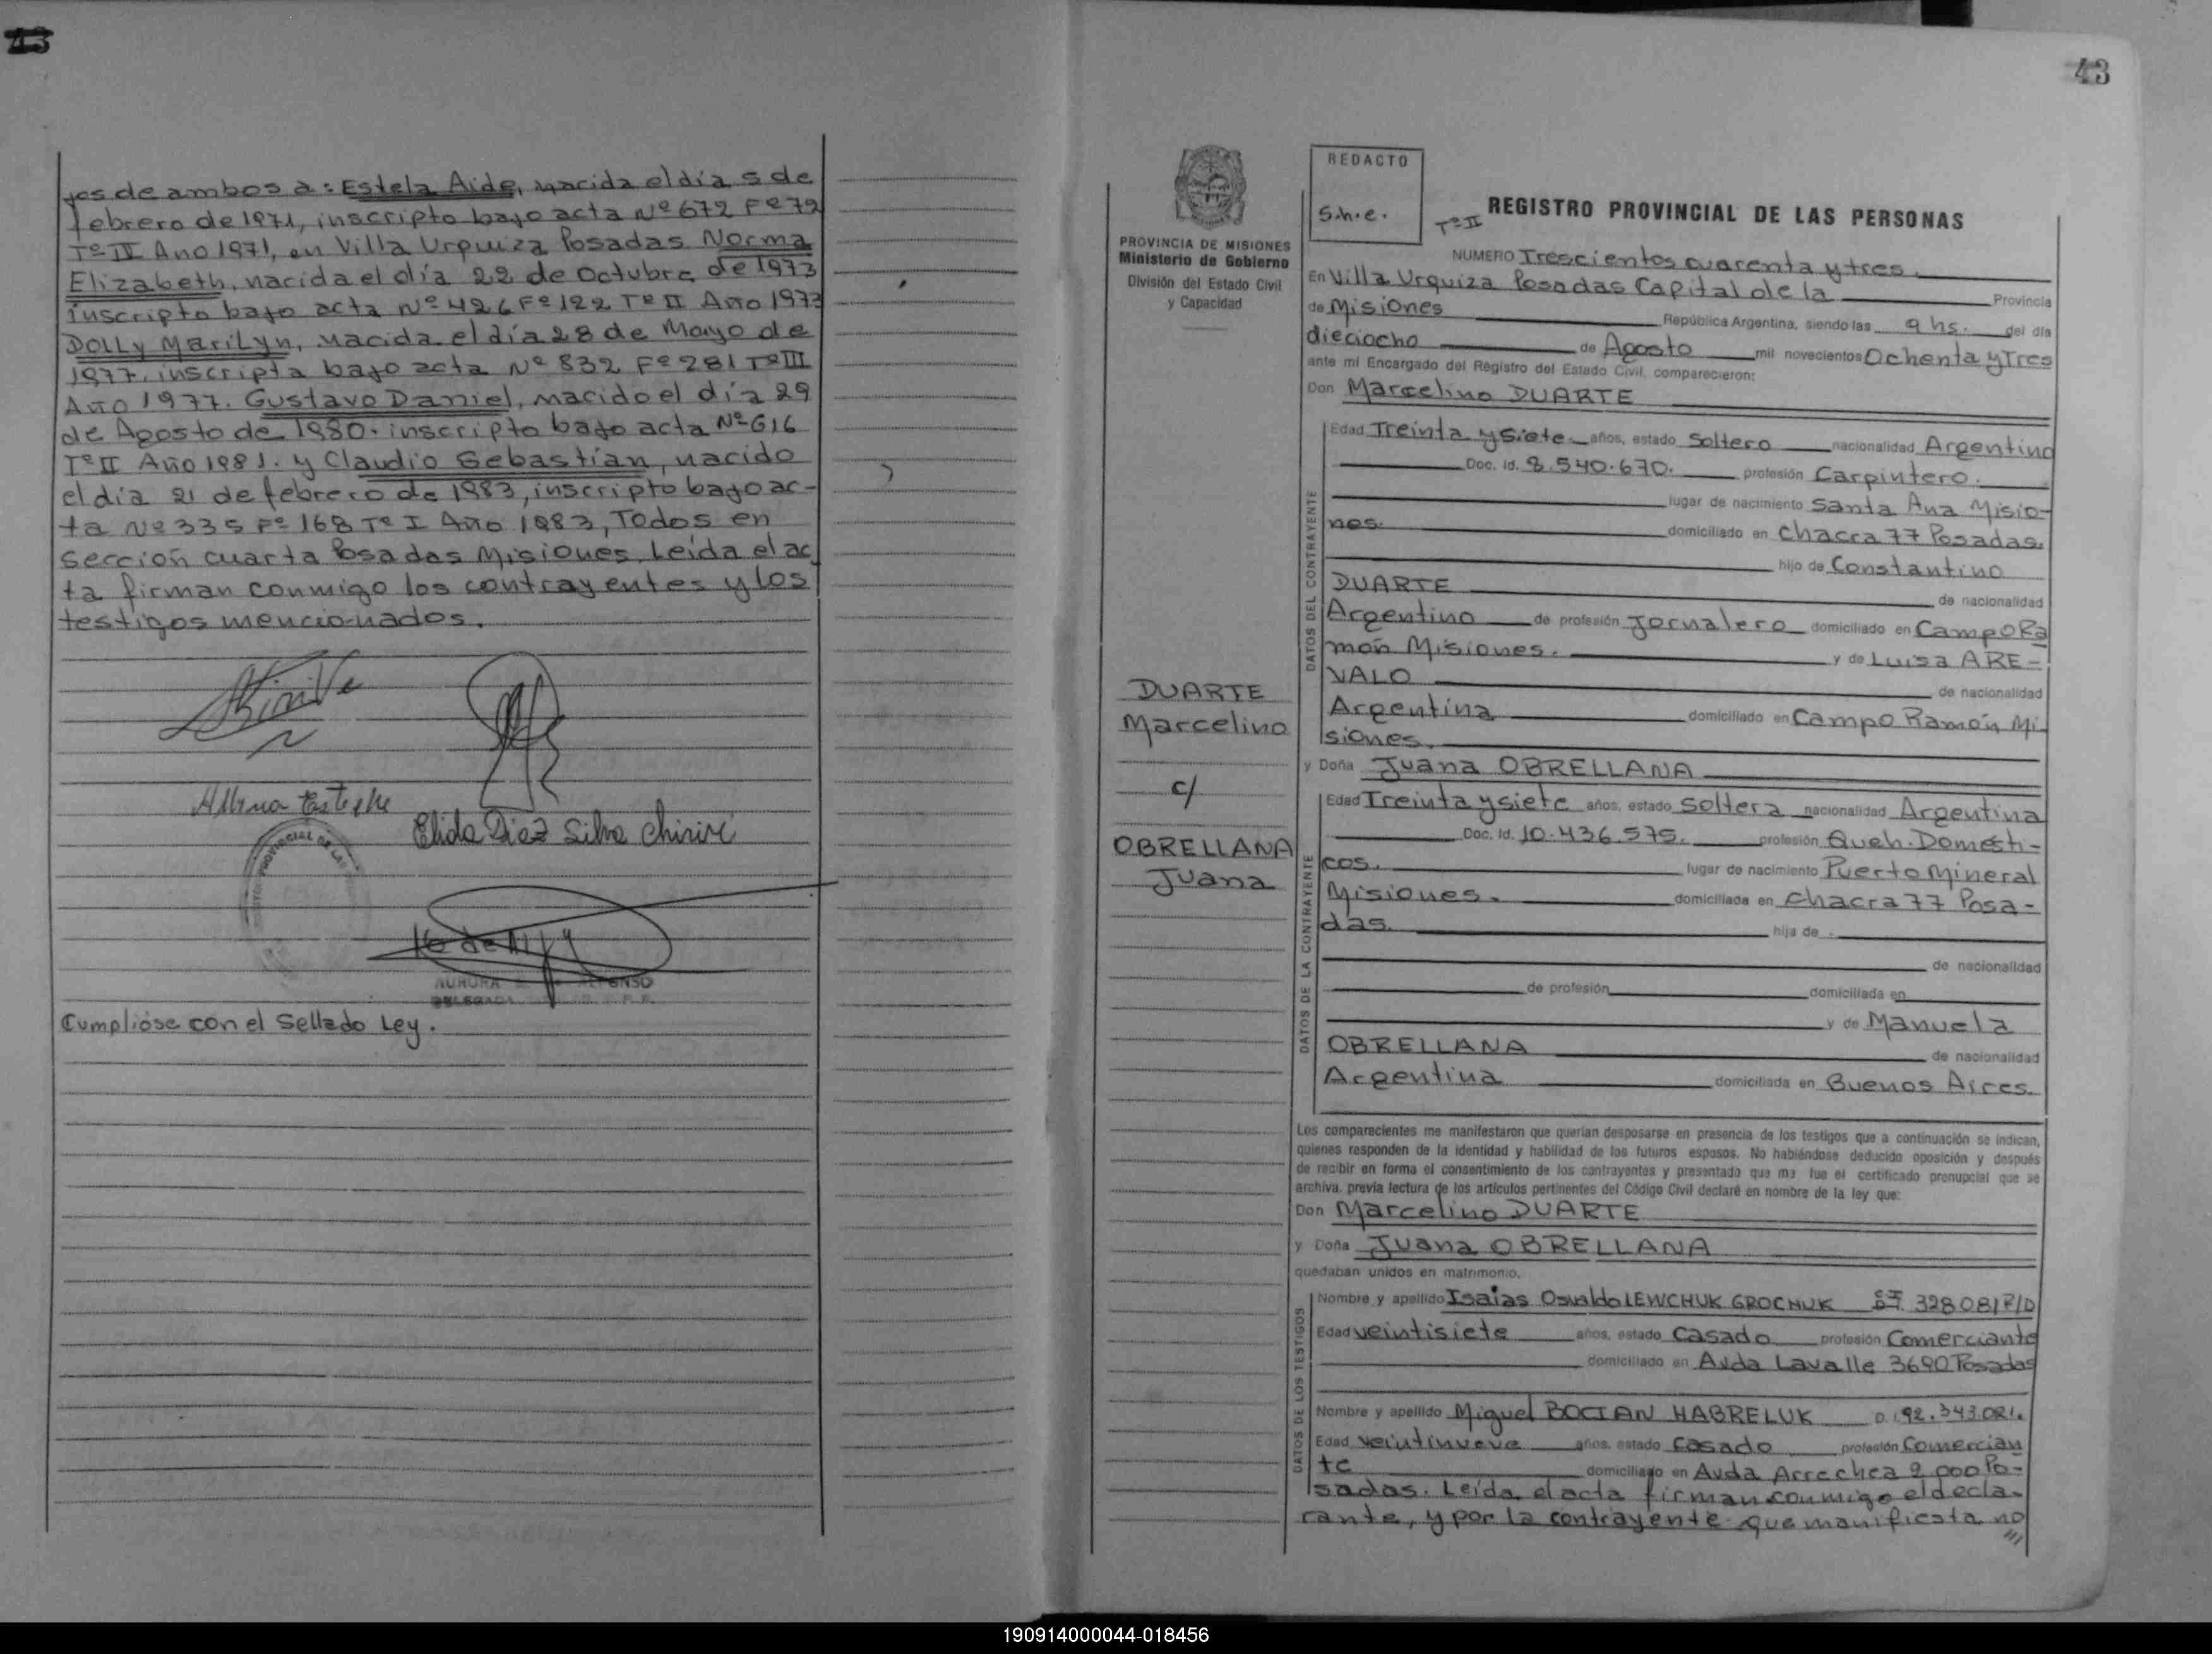 43
jos de ambos a: Estela Aide, nacida el día 5 de
febrero de 1971, inscripto bajo acta Nº 672 Fº 79
Tº II Año 1971, en Villa Urquiza Posadas Norma
Elizabeth, nacida el día 22 de Octubre de 1973
inscripto bajo acta Nº 426 Fº 122 Tº II Año 1973
Dolly Marilyn, nacida el día 28 de Mayo de
1977, inscripta bajo acta Nº 832 Fº 281 Tº III
Año 1977. Gustavo Daniel, nacido el día 29
de Agosto de 1980. inscripto bajo acta Nº 616
Tº II Año 1981. y Claudio Sebastían, nacido
el día 21 de febrero de 1983, inscripto bajo ac-
ta Nº 335 Fº 168 Tº I Año 1983, Todos en
Sección cuarta Posadas Misiones. Leída el ac
ta firman conmigo los contrayentes y los
testigos mencionados.
Elida Diaz Silva
AURORA
DELEGADA
Cumplióse con el Sellado Ley.
43
PROVINCIA DE MISIONES
Ministerio de Gobierno
División del Estado Civil
y Capacidad
DUARTE
Marcelino
c/
OBRELLANA
Juana
REDACTO
S.h.e.
Tº II
REGISTRO PROVINCIAL DE LAS PERSONAS
NUMERO Trescientos cuarenta y tres.
En Villa Urquiza Posadas Capital de la Provincia
de Misiones República Argentina, siendo las 9 hs. del día
dieciocho de Agosto mil novecientos Ochenta y Tres
ante mi Encargado del Registro del Estado Civil, comparecieron:
Don Marcelino DUARTE
DATOS DEL CONTRAYENTE
Edad Treinta y siete años, estado Soltero nacionalidad Argentino
Doc. Id. 8.540.670. profesión Carpintero.
lugar de nacimiento Santa Ana Misio-
nes. domiciliado en Chacra 77 Posadas.
hijo de Constantino
DUARTE de nacionalidad
Argentino de profesión Jornalero domiciliado en Campo Ra
món Misiones. y de Luisa ARE-
VALO de nacionalidad
Argentina domiciliado en Campo Ramón Mi-
siones.
y Doña Juana OBRELLANA
DATOS DE LA CONTRAYENTE
Edad Treinta y siete años, estado Soltera nacionalidad Argentina
Doc. Id. 10.436.575. profesión Queh. Domésti-
cos. lugar de nacimiento Puerto Mineral
Misiones. domiciliada en Chacra 77 Posa-
das. hija de
de nacionalidad
de profesión domiciliada en
y de Manuela
OBRELLANA de nacionalidad
Argentina domiciliada en Buenos Aires.
Los comparecientes me manifestaron que querían desposarse en presencia de los testigos que a continuación se indican,
quienes responden de la identidad y habilidad de los futuros esposos. No habiéndose deducido oposición y después
de recibir en forma el consentimiento de los contrayentes y presentado que me fue el certificado prenupcial que se
archiva, previa lectura de los artículos pertinentes del Código Civil declaré en nombre de la ley que:
Don Marcelino DUARTE
y Doña Juana OBRELLANA
quedaban unidos en matrimonio.
DATOS DE LOS TESTIGOS
Nombre y apellido Isaias Osvaldo LEWCHUK GROCHUK 328081 P/D
Edad veintisiete años, estado Casado profesión Comerciante
domiciliado en Avda Lavalle 3690 Posadas
Nombre y apellido Miguel BOCIAN HABRELUK D.I 92.343.021.
Edad veintinueve años, estado Casado profesión Comercian
te domiciliado en Avda Arrechea 2.000 Po-
sadas. Leída el acta firman conmigo el decla-
rante, y por la contrayente que manifiesta no
///
190914000044-018456